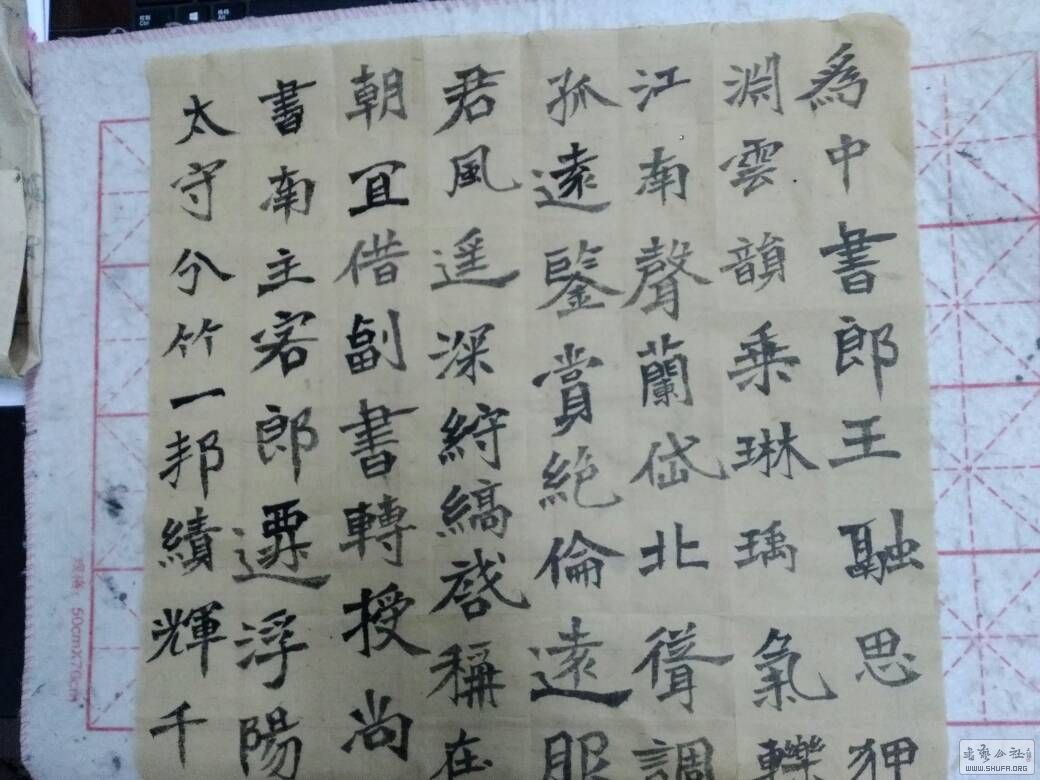 為中書郎王融思狎
淵雲韻乘琳瑀氣轢
江南聲蘭岱北聳調
孤遠鑒賞絕倫遠服
君風遥深紵縞啓稱在
朝冝借副書轉授尚
書南主客郎遷浮陽
太守分竹一邦績輝千
50cmX70cm
书艺公社
WWW.SHUFA.ORG
Ctrl
Alt